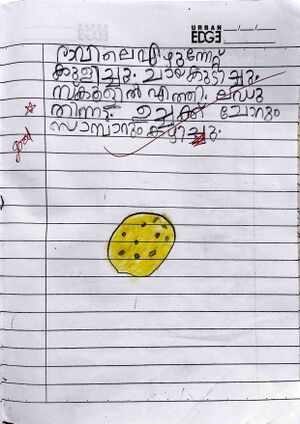 URBAN
EDGE
രാവിലെ എഴുന്നേറ്റ്
കുളിച്ചു. ചായ കുടിച്ചു.
സ്കൂളിൽ എത്തി. ലഡു
തിന്നു. ഉച്ചക്ക് ചോറും
സാമ്പാറും കഴിച്ചു.
good